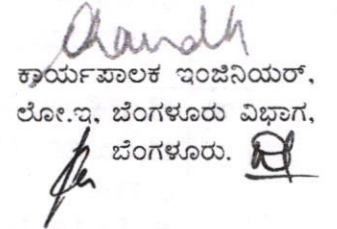 ಕಾರ್ಯಪಾಲಕ ಇಂಜಿನಿಯರ್,
ಲೋ.ಇ, ಬೆಂಗಳೂರು ವಿಭಾಗ,
ಬೆಂಗಳೂರು.